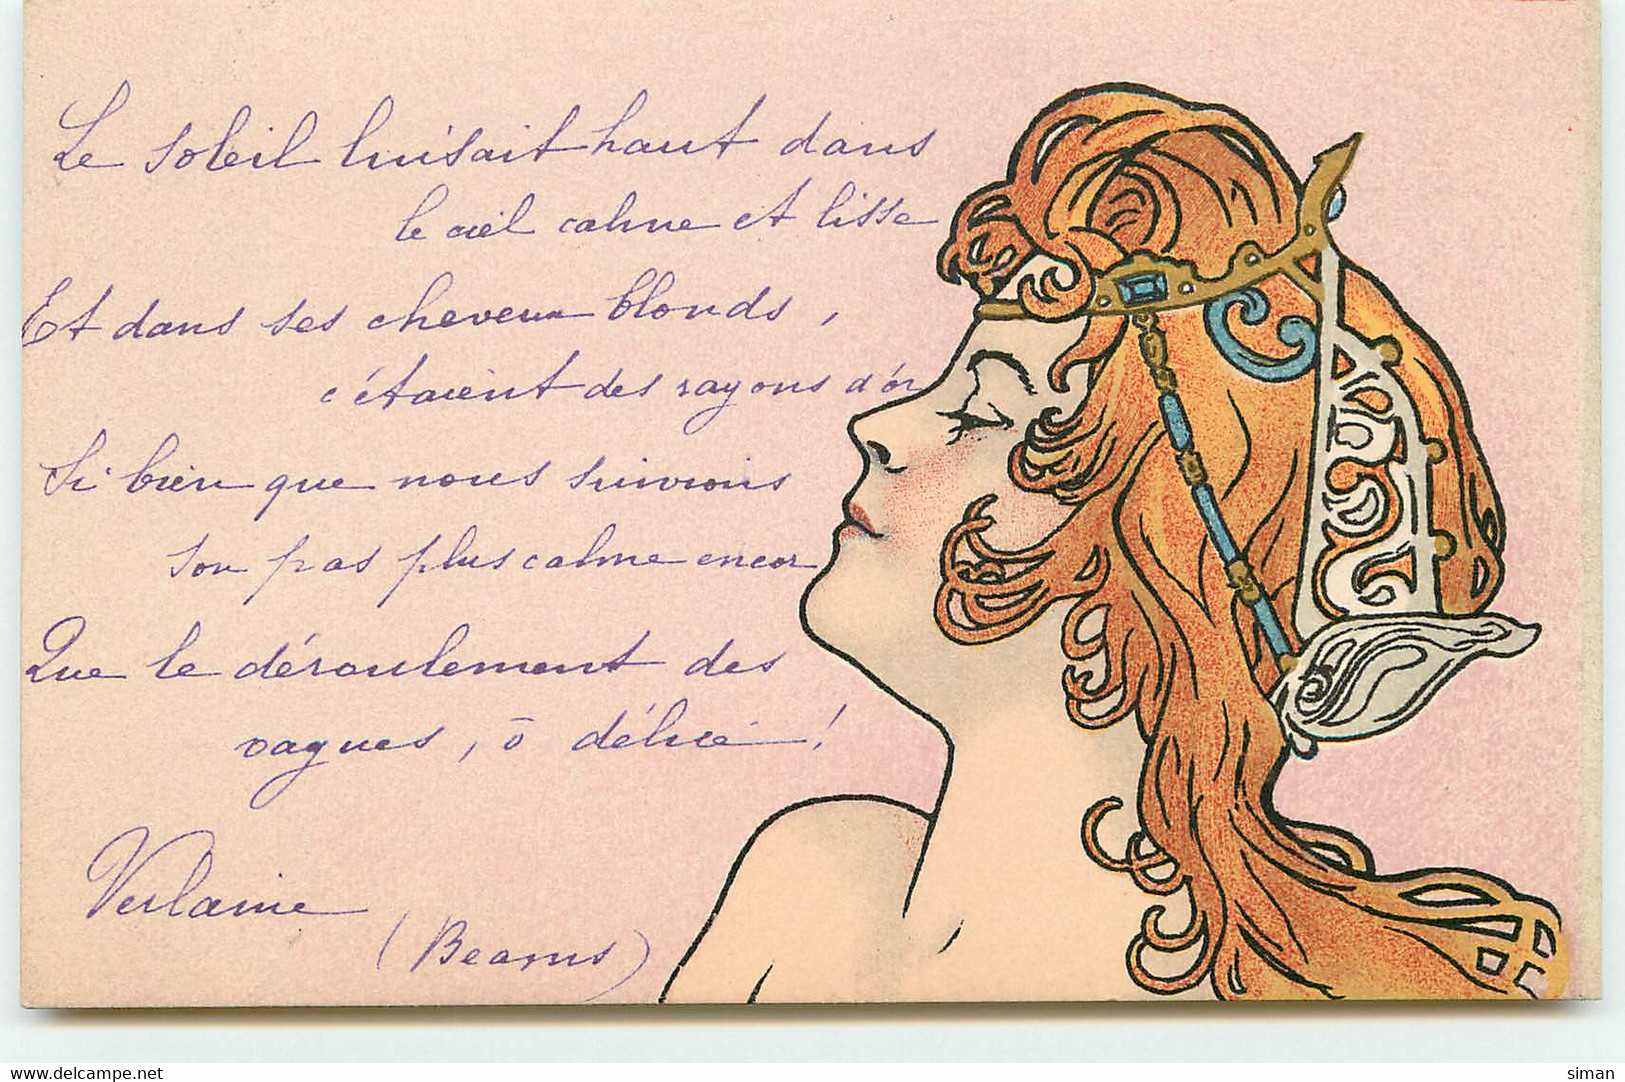 Le soleil luisait haut dans
le ciel calme et lisse
Et dans ses cheveux blonds,
c'étaient des rayons d'or
Si bien que nous suivions
son pas plus calme encor
Que le déroulement des
vagues, ô délice!
Verlaine
(Beams)
www.delcampe.net
siman